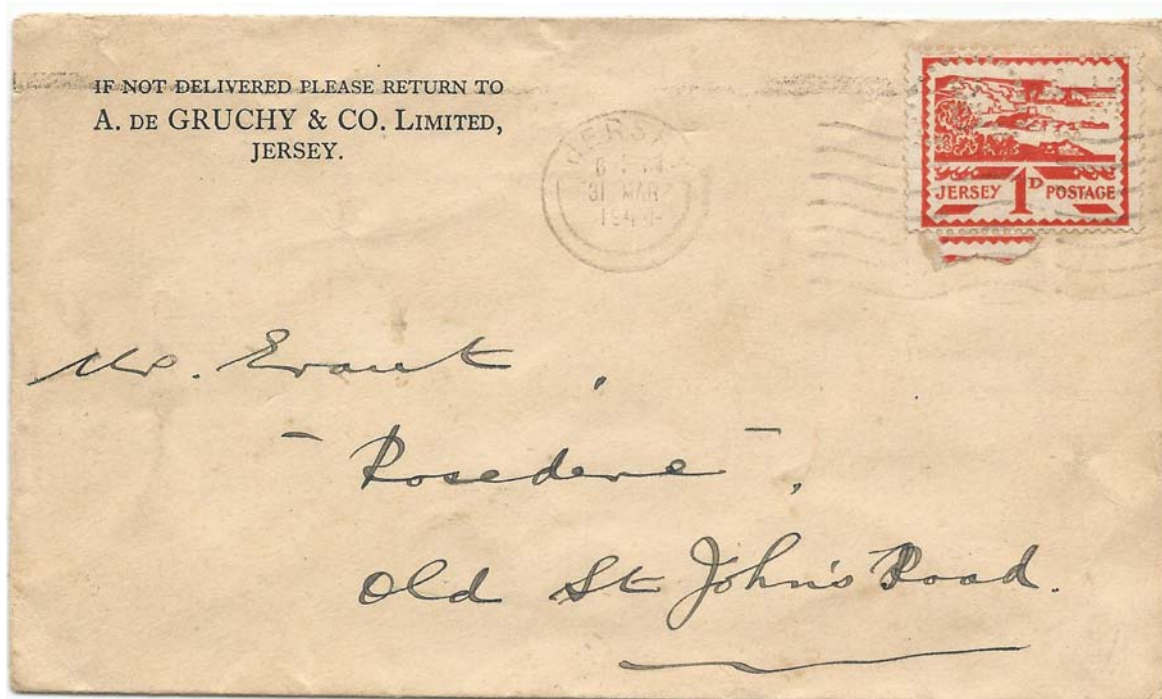 IF NOT DELIVERED PLEASE RETURN TO
A. DE GRUCHY & CO. LIMITED,
JERSEY.
JERSEY
31 MAR
JERSEY 1D POSTAGE
Mr.
"Rosedene",
Old St John's Road.